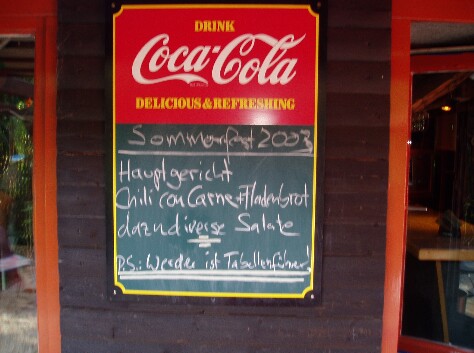 DRINK
Coca-Cola
DELICIOUS & REFRESHING
Sommerfest 2003
Hauptgericht
Chili con Carne + Fladenbrot
dazu diverse Salate
P.S.: Werder ist Tabellenführer!